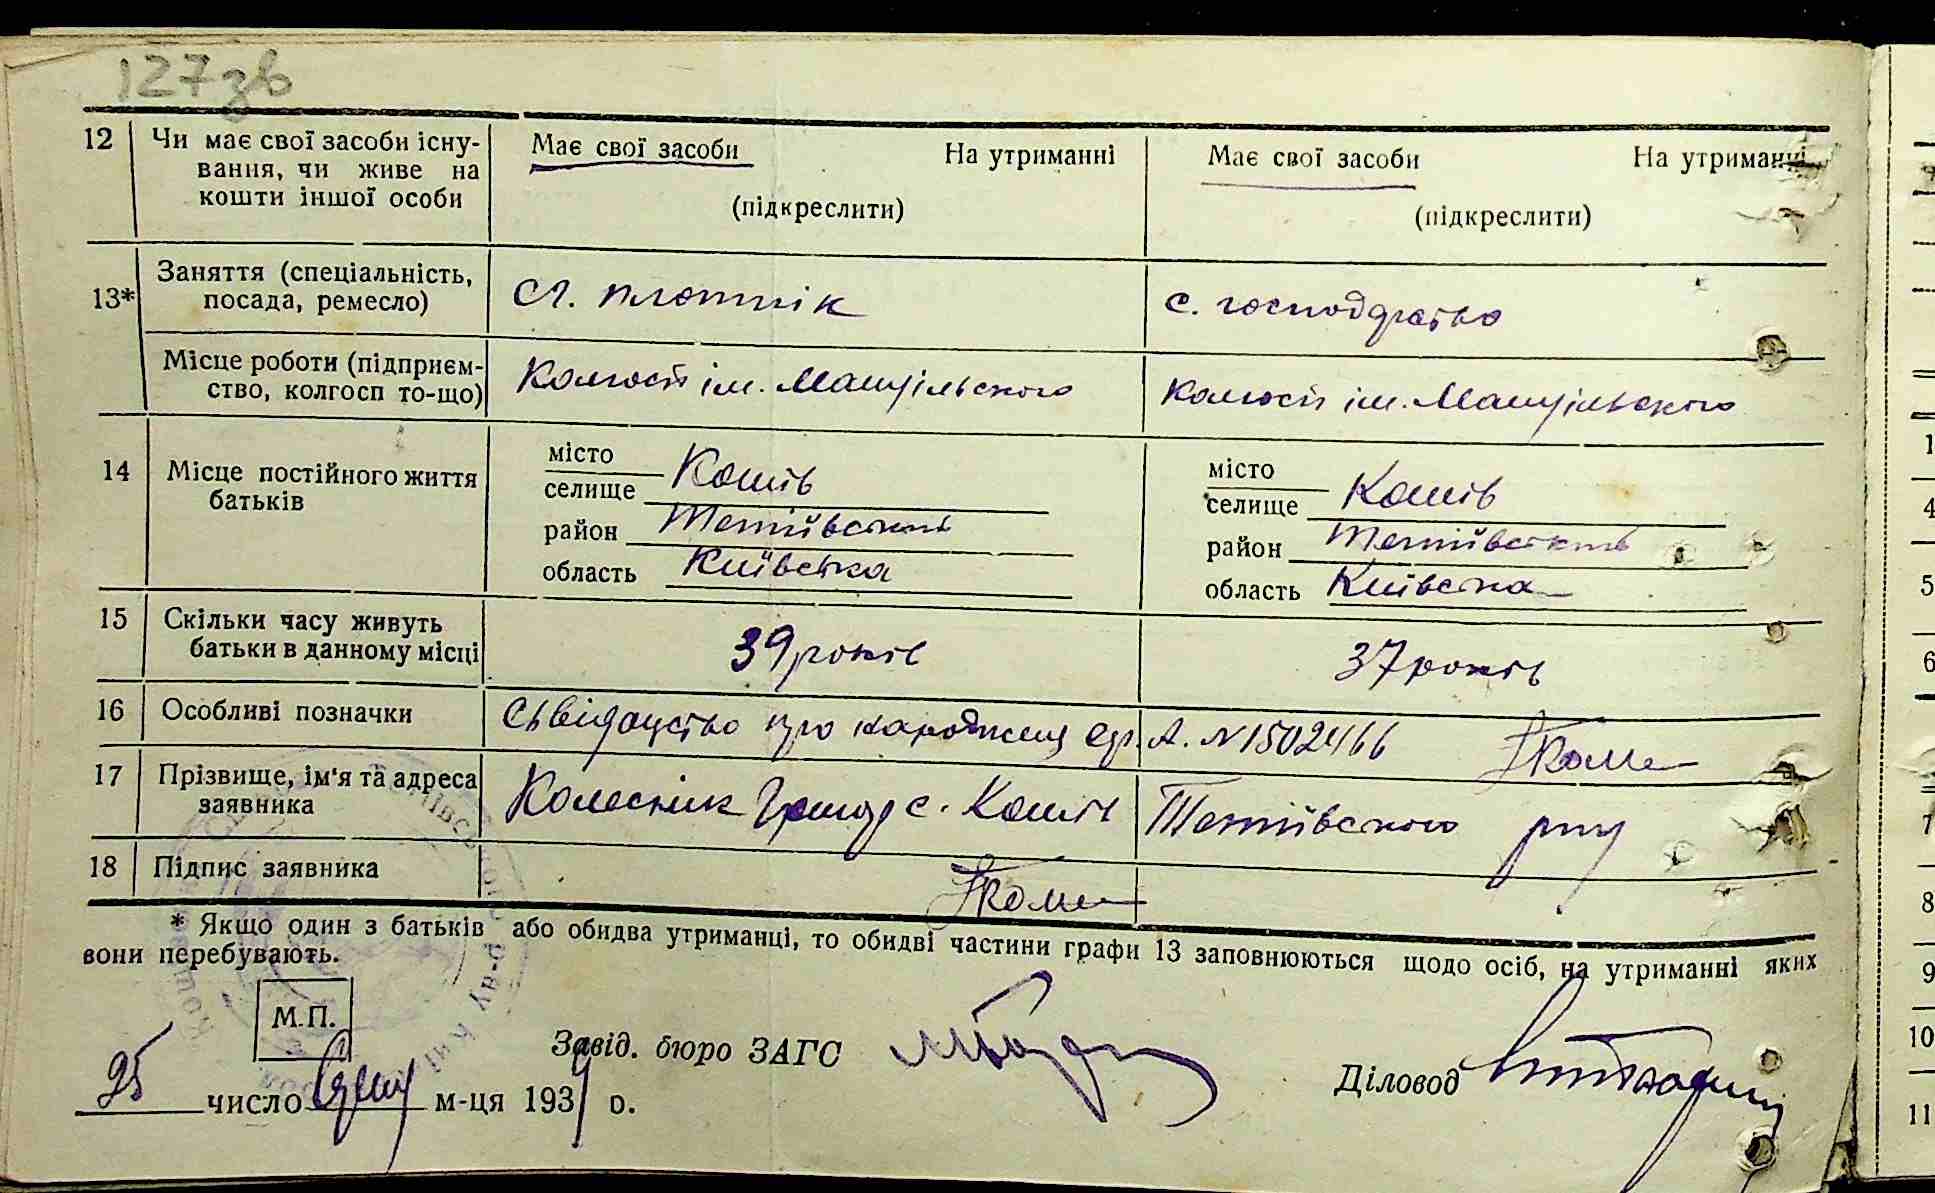 127зв
12 Чи має свої засоби існу- Має свої засоби На утриманні Має свої засоби На утриманні
вання, чи живе на
кошти іншої особи (підкреслити) (підкреслити)
13* Заняття (спеціальність, ст. плотнік с. господрство
посада, ремесло)
Місце роботи (підприєм- Колгосп ім. Мануїльского Колгосп ім. Мануїльского
ство, колгосп то-що)
14 Місце постійного життя місто Кошів місто Кошів
батьків селище селище
район Тетиївський район Тетиївський
область Київська область Київська
15 Скільки часу живуть 39 років 37 років
батьки в данному місці
16 Особливі позначки Сьвідоцство про народженя А. N1502466
17 Прізвище, ім'я та адреса Колесник с. Кошів Тетиївского р-ну
заявника
18 Підпис заявника
* Якщо один з батьків або обидва утриманці, то обидві частини графи 13 заповнюються щодо осіб, на утриманні яких
вони перебувають.
М.П.
Завід. бюро ЗАГС
Діловод
25 число м-ця 193 р.
1
4
5
6
7
8
9
10
11